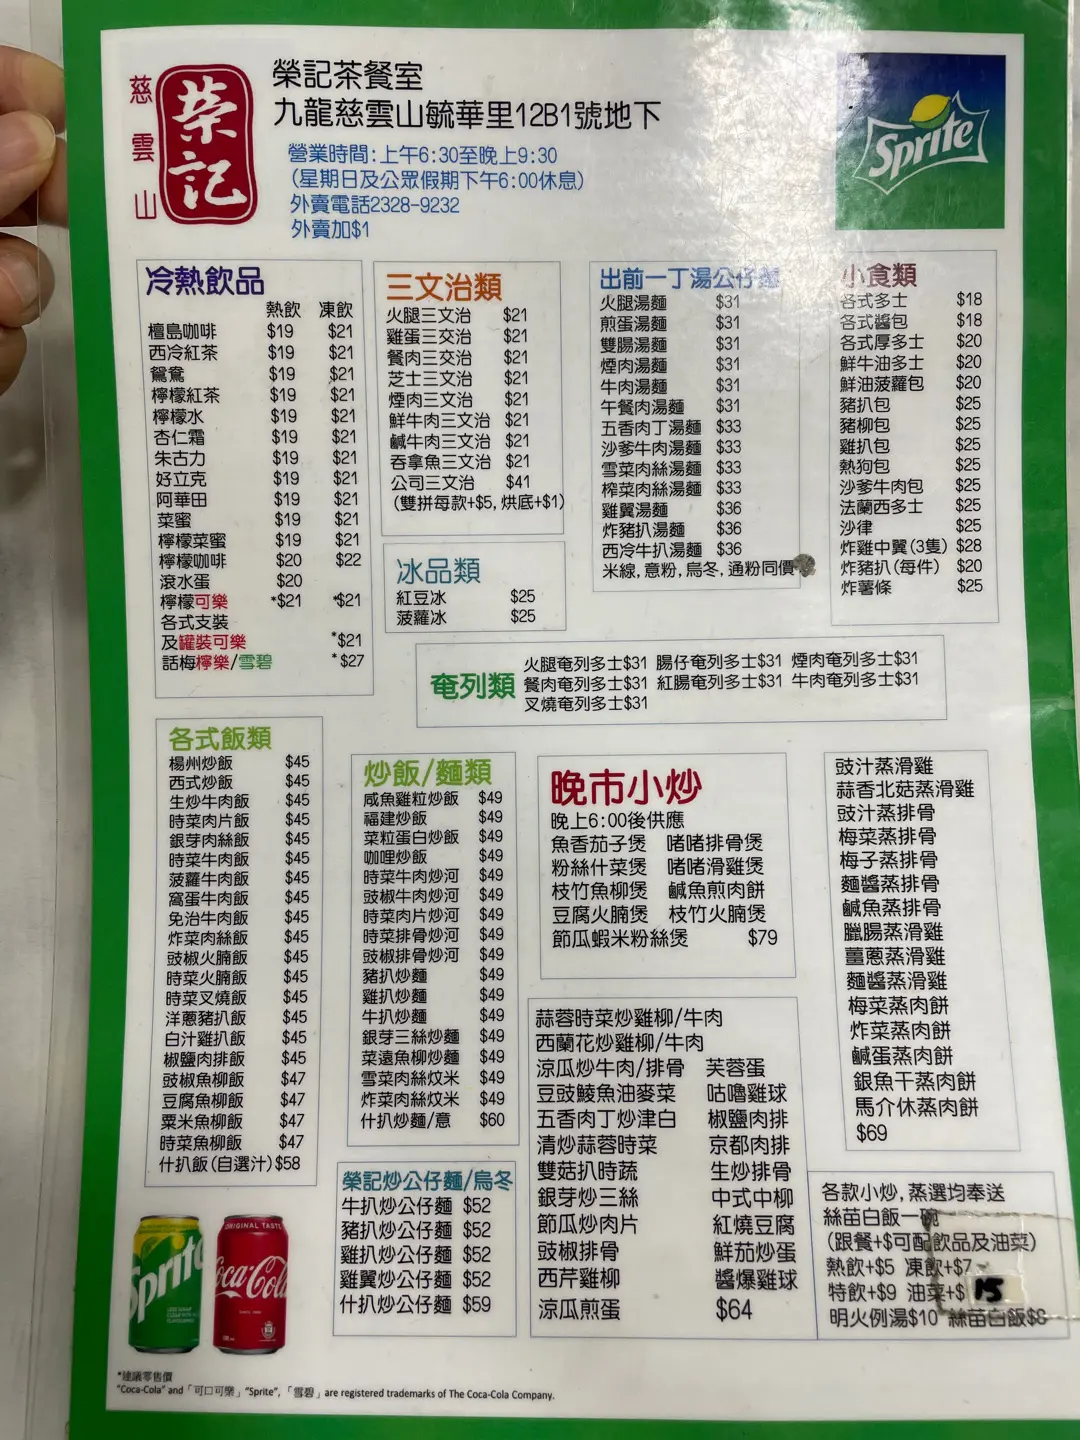 慈雲山
榮記
榮記茶餐室
九龍慈雲山毓華里12B1號地下
營業時間:上午6:30至晚上9:30
(星期日及公眾假期下午6:00休息)
外賣電話2328-9232
外賣加$1
Sprite
冷熱飲品
熱飲 凍飲
檀島咖啡 $19 $21
西冷紅茶 $19 $21
鴛鴦 $19 $21
檸檬紅茶 $19 $21
檸檬水 $19 $21
杏仁霜 $19 $21
朱古力 $19 $21
好立克 $19 $21
阿華田 $19 $21
菜蜜 $19 $21
檸檬菜蜜 $19 $21
檸檬咖啡 $20 $22
滾水蛋 $20
檸檬可樂 *$21 *$21
各式支裝
及罐裝可樂 *$21
話梅檸樂/雪碧 *$27
三文治類
火腿三文治 $21
雞蛋三交治 $21
餐肉三文治 $21
芝士三文治 $21
煙肉三文治 $21
鮮牛肉三文治 $21
鹹牛肉三文治 $21
吞拿魚三文治 $21
公司三文治 $41
(雙拼每款+$5, 烘底+$1)
冰品類
紅豆冰 $25
菠蘿冰 $25
出前一丁湯公仔麵
火腿湯麵 $31
煎蛋湯麵 $31
雙腸湯麵 $31
煙肉湯麵 $31
牛肉湯麵 $31
午餐肉湯麵 $31
五香肉丁湯麵 $33
沙爹牛肉湯麵 $33
雪菜肉絲湯麵 $33
榨菜肉絲湯麵 $33
雞翼湯麵 $36
炸豬扒湯麵 $36
西冷牛扒湯麵 $36
米線, 意粉, 烏冬, 通粉同價
小食類
各式多士 $18
各式醬包 $18
各式厚多士 $20
鮮牛油多士 $20
鮮油菠蘿包 $20
豬扒包 $25
豬柳包 $25
雞扒包 $25
熱狗包 $25
沙爹牛肉包 $25
法蘭西多士 $25
沙律 $25
炸雞中翼(3隻) $28
炸豬扒(每件) $20
炸薯條 $25
奄列類
火腿奄列多士$31 腸仔奄列多士$31 煙肉奄列多士$31
餐肉奄列多士$31 紅腸奄列多士$31 牛肉奄列多士$31
叉燒奄列多士$31
各式飯類
楊州炒飯 $45
西式炒飯 $45
生炒牛肉飯 $45
時菜肉片飯 $45
銀芽肉絲飯 $45
時菜牛肉飯 $45
菠蘿牛肉飯 $45
窩蛋牛肉飯 $45
免治牛肉飯 $45
炸菜肉絲飯 $45
豉椒火腩飯 $45
時菜火腩飯 $45
時菜叉燒飯 $45
洋蔥豬扒飯 $45
白汁雞扒飯 $45
椒鹽肉排飯 $45
豉椒魚柳飯 $47
豆腐魚柳飯 $47
粟米魚柳飯 $47
時菜魚柳飯 $47
什扒飯(自選汁) $58
炒飯/麵類
咸魚雞粒炒飯 $49
福建炒飯 $49
菜粒蛋白炒飯 $49
咖哩炒飯 $49
時菜牛肉炒河 $49
豉椒牛肉炒河 $49
時菜肉片炒河 $49
時菜排骨炒河 $49
豉椒排骨炒河 $49
豬扒炒麵 $49
雞扒炒麵 $49
牛扒炒麵 $49
銀芽三絲炒麵 $49
菜遠魚柳炒麵 $49
雪菜肉絲炆米 $49
炸菜肉絲炆米 $49
什扒炒麵/意 $60
榮記炒公仔麵/烏冬
牛扒炒公仔麵 $52
豬扒炒公仔麵 $52
雞扒炒公仔麵 $52
雞翼炒公仔麵 $52
什扒炒公仔麵 $59
晚市小炒
晚上6:00後供應
魚香茄子煲 啫啫排骨煲
粉絲什菜煲 啫啫滑雞煲
枝竹魚柳煲 鹹魚煎肉餅
豆腐火腩煲 枝竹火腩煲
節瓜蝦米粉絲煲 $79
蒜蓉時菜炒雞柳/牛肉
西蘭花炒雞柳/牛肉
涼瓜炒牛肉/排骨 芙蓉蛋
豆豉鯪魚油麥菜 咕嚕雞球
五香肉丁炒津白 椒鹽肉排
清炒蒜蓉時菜 京都肉排
雙菇扒時蔬 生炒排骨
銀芽炒三絲 中式中柳
節瓜炒肉片 紅燒豆腐
豉椒排骨 鮮茄炒蛋
西芹雞柳 醬爆雞球
涼瓜煎蛋 $64
豉汁蒸滑雞
蒜香北菇蒸滑雞
豉汁蒸排骨
梅菜蒸排骨
梅子蒸排骨
麵醬蒸排骨
鹹魚蒸排骨
臘腸蒸滑雞
薑蔥蒸滑雞
麵醬蒸滑雞
梅菜蒸肉餅
炸菜蒸肉餅
鹹蛋蒸肉餅
銀魚干蒸肉餅
馬介休蒸肉餅
$69
各款小炒, 蒸選均奉送
絲苗白飯一碗
(跟餐+$可配飲品及油菜)
熱飲+$5 凍飲+$7
特飲+$9 油菜+$15
明火例湯$10 絲苗白飯$8
Sprite
ORIGINAL TASTE
Coca-Cola
*建議零售價
"Coca-Cola" and「可口可樂」"Sprite",「雪碧」are registered trademarks of The Coca-Cola Company.